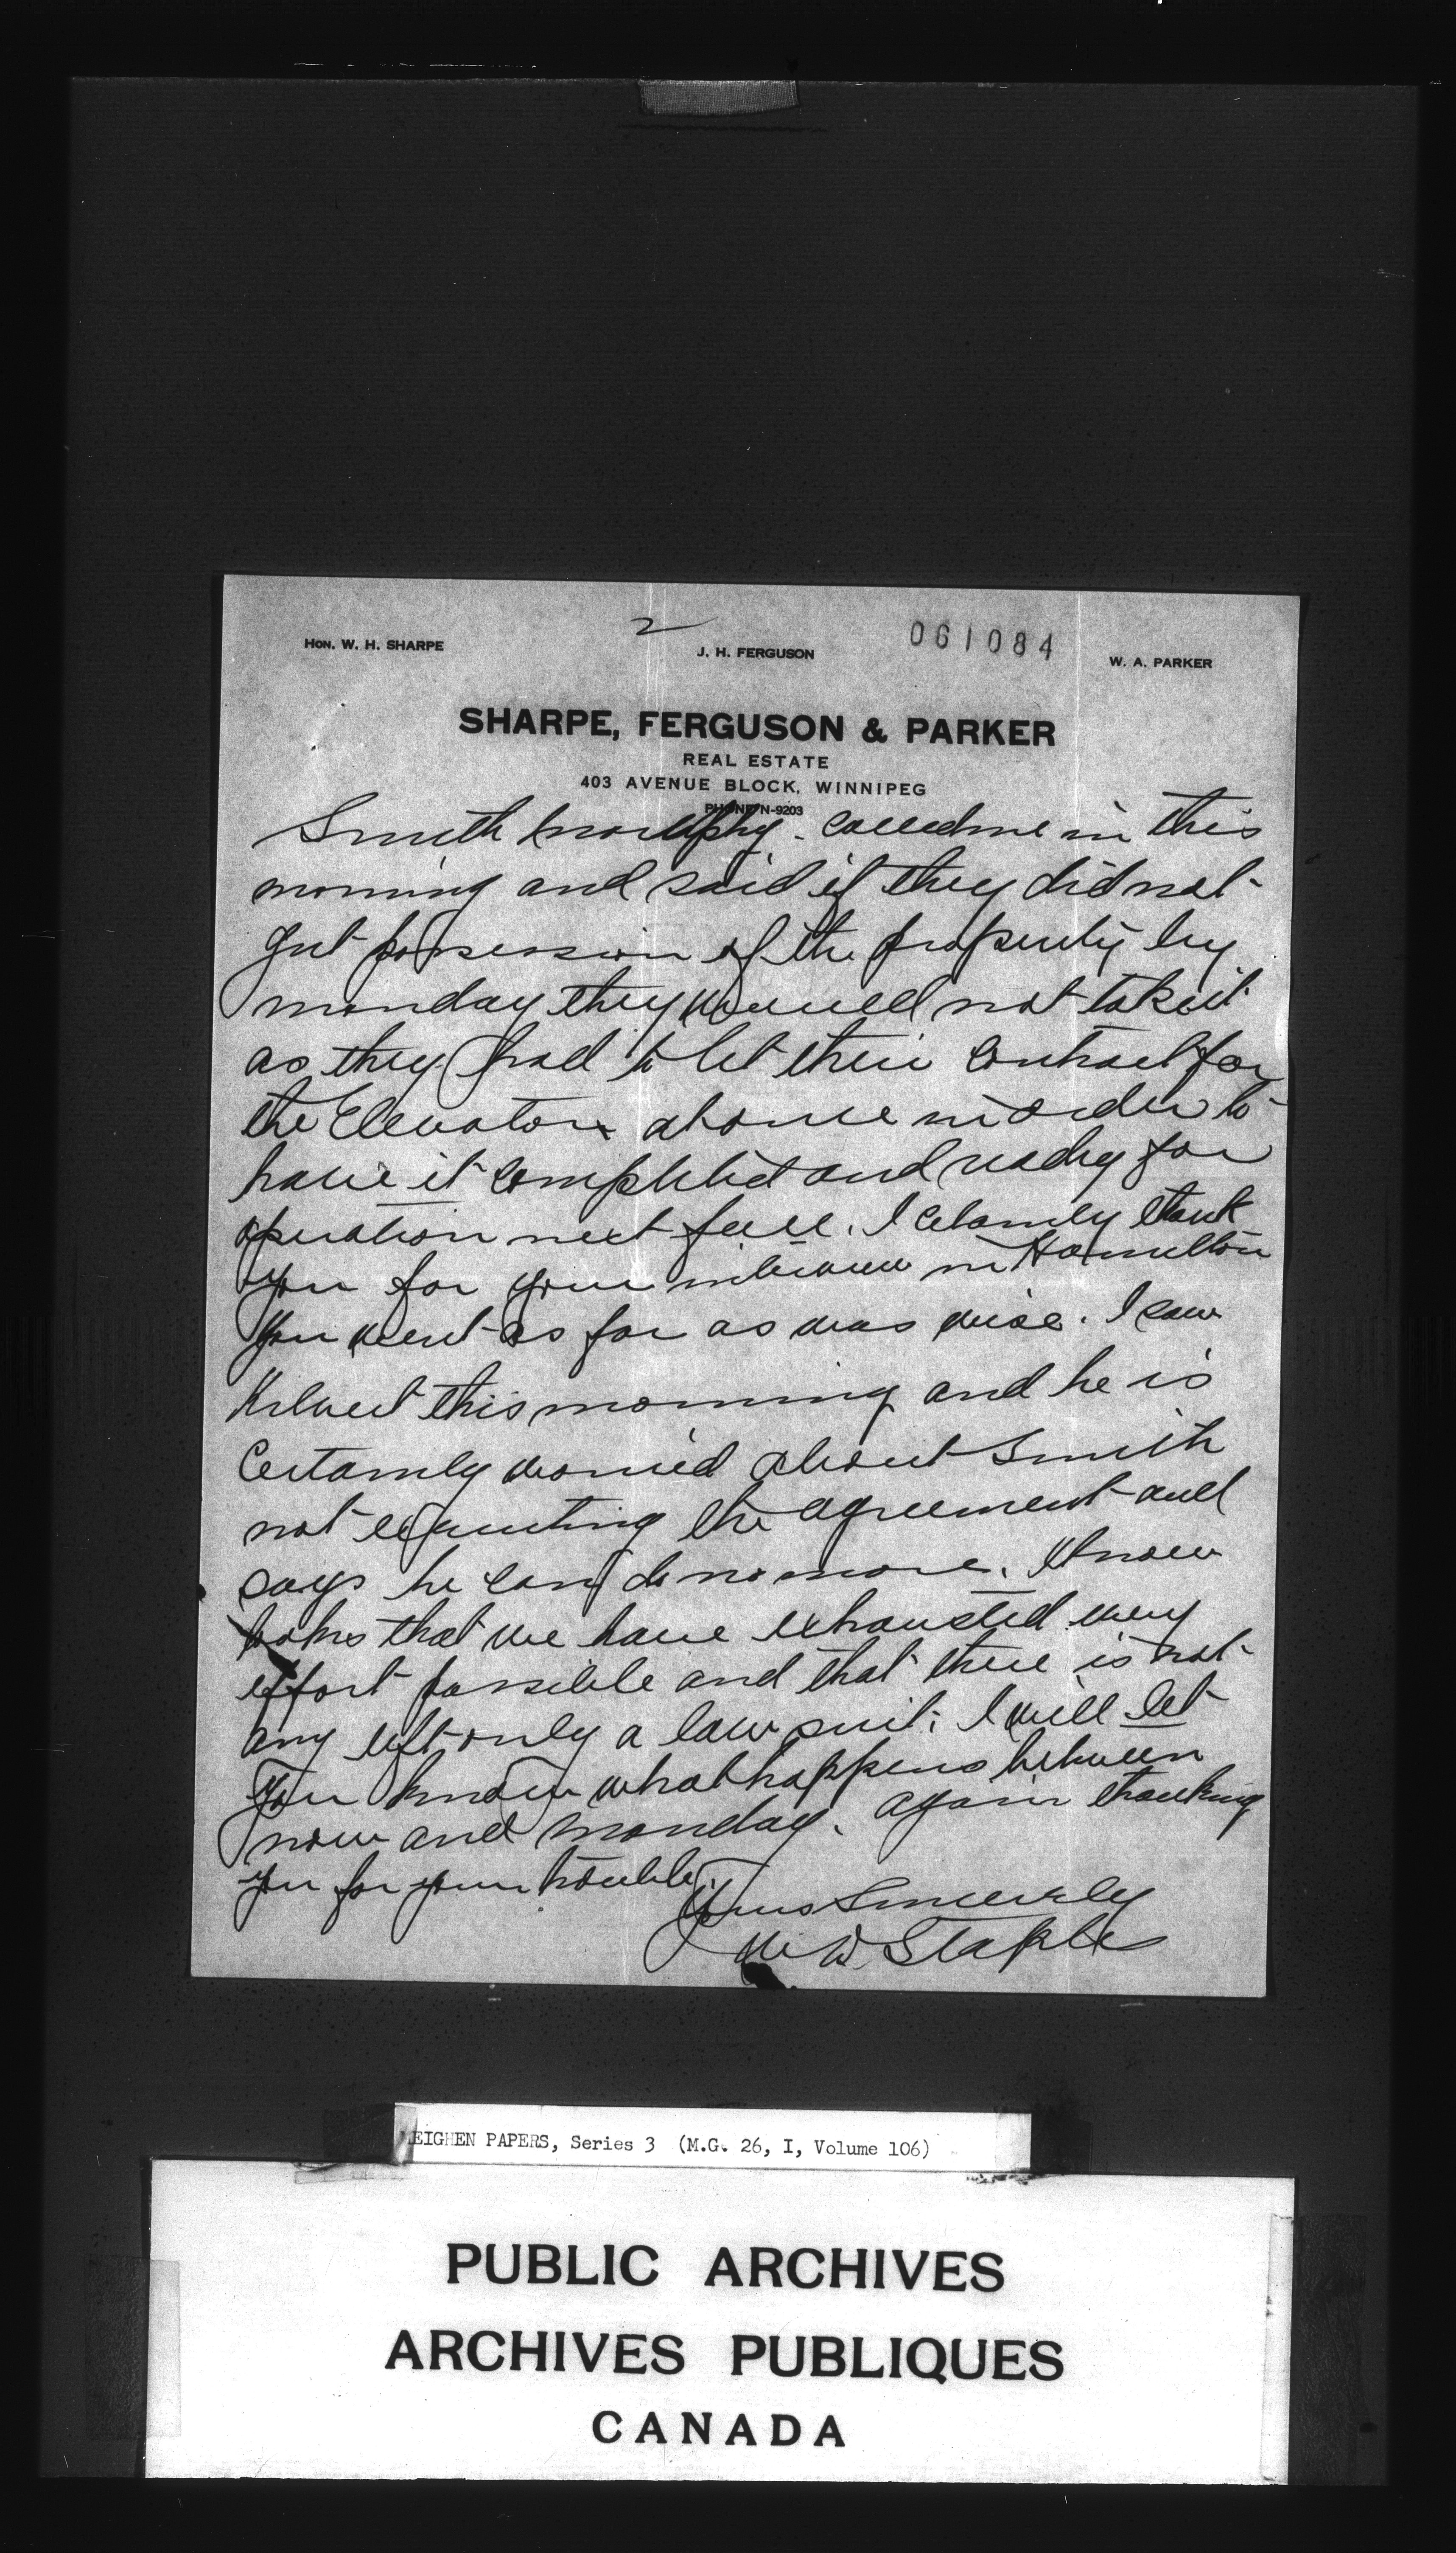 2
061084
HON. W. H. SHARPE
J. H. FERGUSON
W. A. PARKER
SHARPE, FERGUSON & PARKER
REAL ESTATE
403 AVENUE BLOCK, WINNIPEG
PHONE N-9203
Smith Murphy called me in this
morning and said if they did not
get possession of the property by
monday they would not take it
as they had to let their contract for
the Elevator at once in order to
have it completed and ready for
operation next fall. I certainly thank
you for your interview in Hamilton
You went as far as was wise. I saw
this morning and he is
Certainly worried about Smith
not executing the agreement and
says he can do no more. It now
looks that we have exhausted every
effort possible and that there is not
any left only a law suit; I will let
you know what happens between
now and monday. again thanking
you for your trouble
Yours Sincerely
W D Staples
MEIGHEN PAPERS, Series 3 (M.G. 26, I, Volume 106)
PUBLIC ARCHIVES
ARCHIVES PUBLIQUES
CANADA